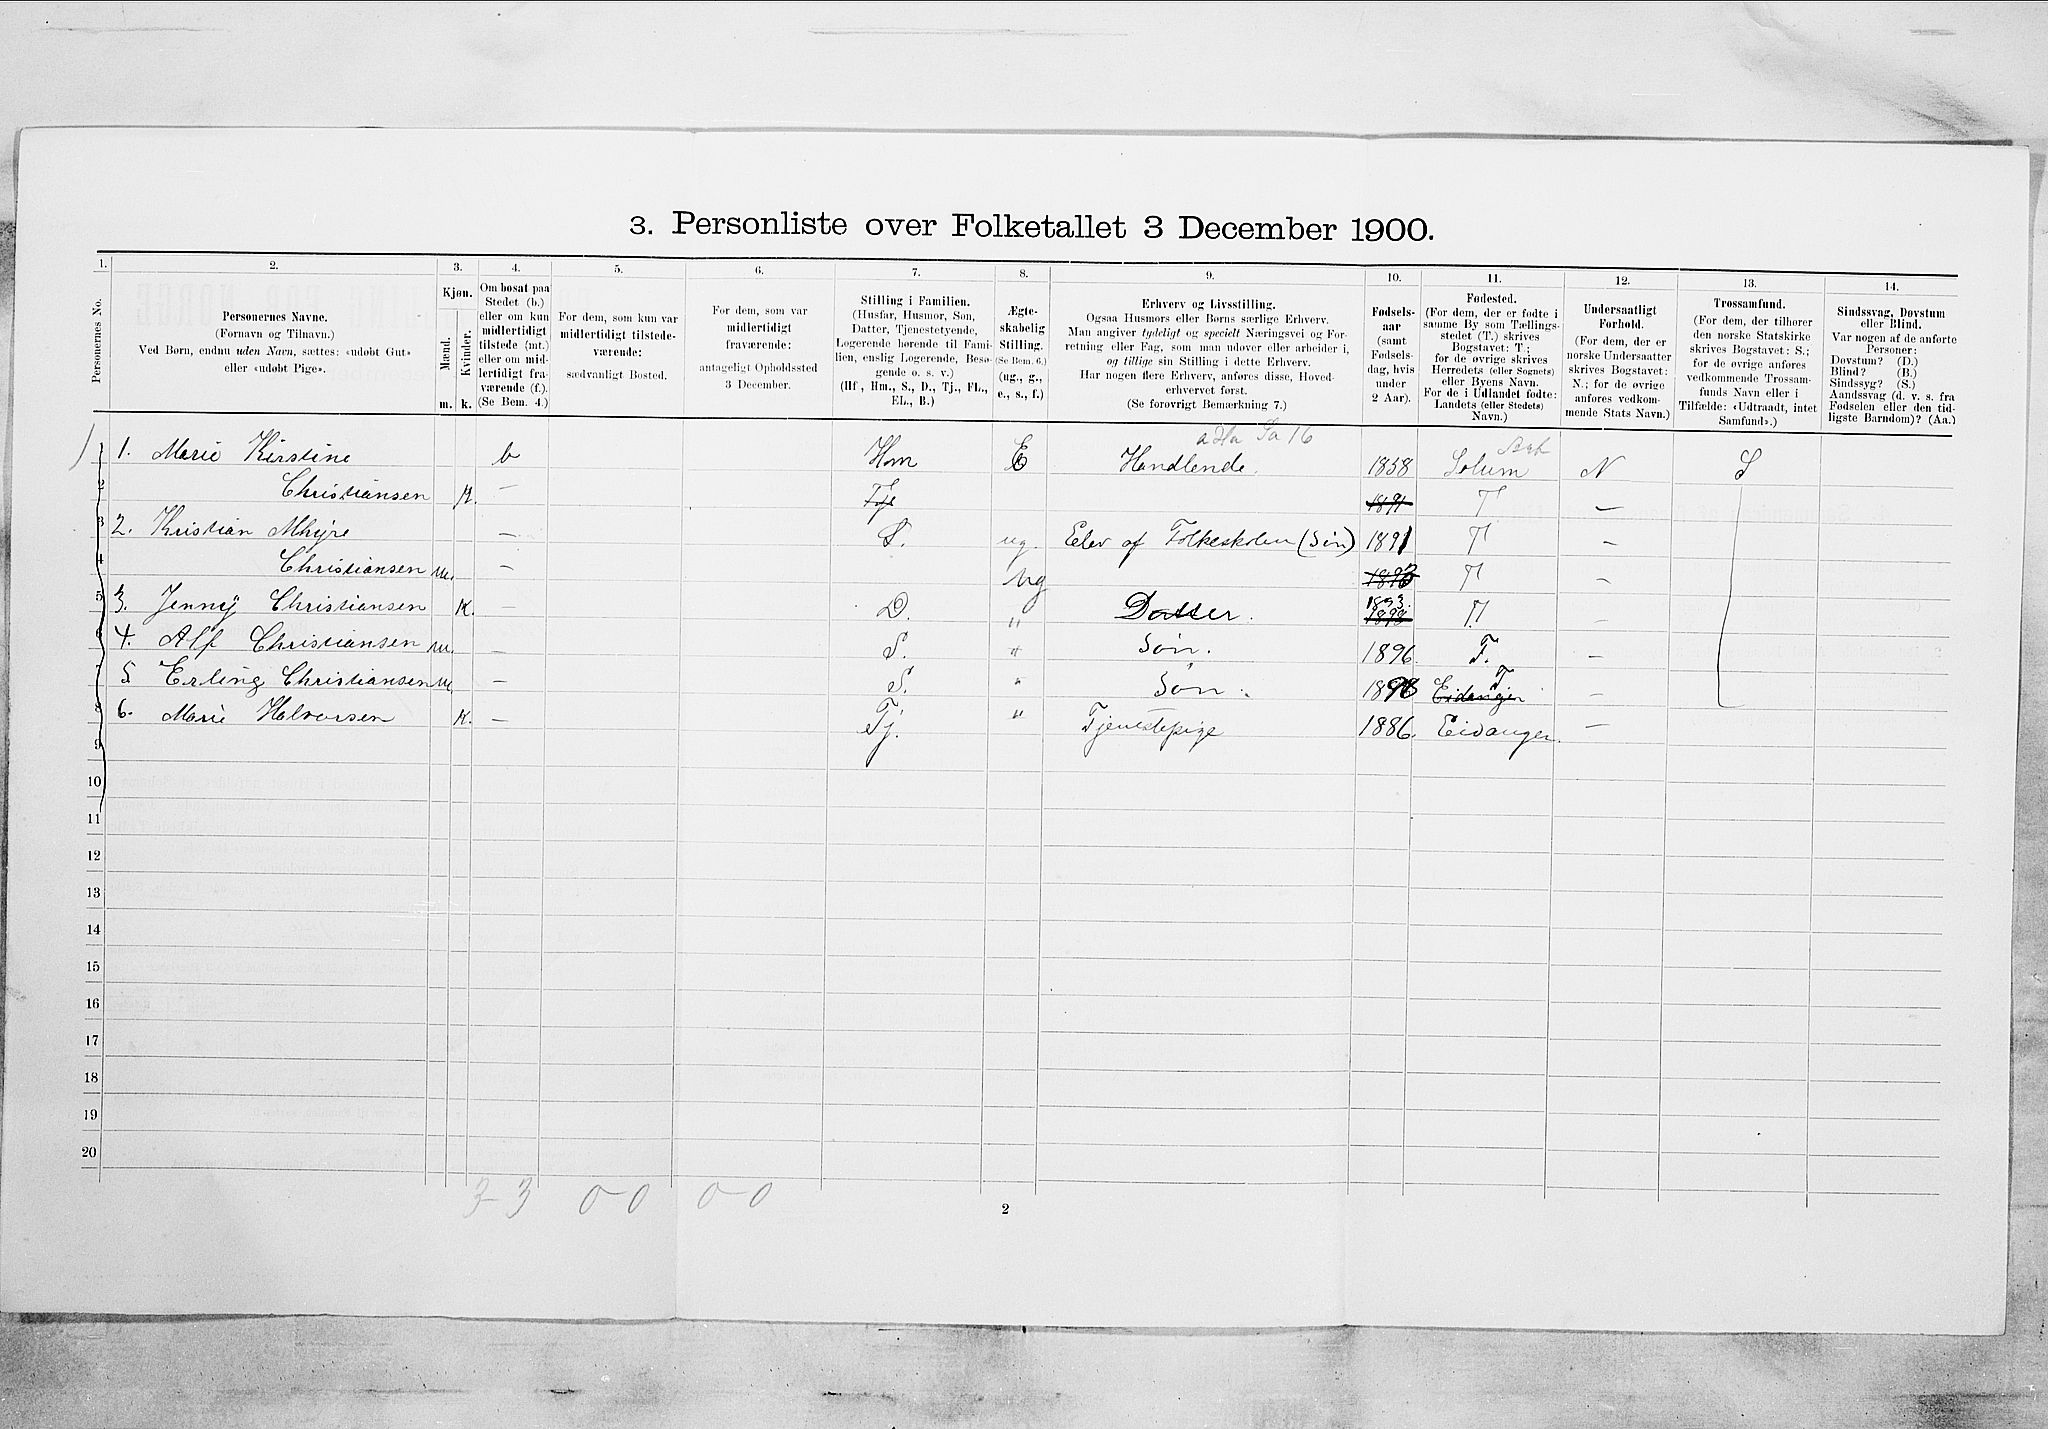 3. Personliste over Folketallet 3 December 1900.
1. 2. 3. 4. 5. 6. 7. 8. 9. 10. 11. 12. 13. 14.
Personernes No.
Personernes Navne.
(Fornavn og Tilnavn.)
Ved Børn, endnu uden Navn, sættes: «udøbt Gut»
eller «udøbt Pige».
Kjøn.
Mænd.
Kvinder.
m. k.
Om bosat paa
Stedet (b.)
eller om kun
midlertidigt
tilstede (mt.)
eller om mid-
lertidigt fra-
værende (f.).
(Se Bem. 4.)
For dem, som kun var
midlertidigt tilstede-
værende:
sædvanligt Bosted.
For dem, som var
midlertidigt
fraværende:
antageligt Opholdssted
3 December.
Stilling i Familien.
(Husfar, Husmor, Søn,
Datter, Tjenestetyende,
Logerende hørende til Fami-
lien, enslig Logerende, Besø-
gende o. s. v.)
(Hf., Hm., S., D., Tj., FL.,
EL., B.)
Ægte-
skabelig
Stilling.
(Se Bem. 6.)
(ug., g.,
e., s., f.)
Erhverv og Livsstilling.
Ogsaa Husmors eller Børns særlige Erhverv.
Man angiver tydeligt og specielt Næringsvei og For-
retning eller Fag, som man udøver eller arbeider i,
og tillige sin Stilling i dette Erhverv.
Har nogen flere Erhverv, anføres disse, Hoved-
erhvervet først.
(Se forøvrigt Bemærkning 7.)
Fødsels-
aar
(samt
Fødsels-
dag, hvis
under
2 Aar).
Fødested.
(For dem, der er fødte i
samme By som Tællings-
stedet (T.) skrives
Bogstavet: T;
for de øvrige skrives
Herredets (eller Sognets)
eller Byens Navn.
For de i Udlandet fødte:
Landets (eller Stedets)
Navn.)
Undersaatligt
Forhold.
(For dem, der er
norske Undersaatter
skrives Bogstavet:
N.; for de øvrige
anføres vedkom-
mende Stats Navn.)
Trossamfund.
(For dem, der tilhører
den norske Statskirke
skrives Bogstavet: S.;
for de øvrige anføres
vedkommende Trossam-
funds Navn eller i
Tilfælde: «Udtraadt, intet
Samfund».)
Sindssvag, Døvstum
eller Blind.
Var nogen af de anførte
Personer:
Døvstum? (D.)
Blind? (B.)
Sindssyg? (S.)
Aandssvag (d. v. s. fra
Fødselen eller den tid-
ligste Barndom)? (Aa.)
1 1. Marie Kirstine b Hm E Handlende. 1858 Solum N S
2 Christiansen K. — Tje 1891 T —
3 2. Kristian Mhyre — S. ug. Elev af Folkeskolen (Søn) 1891 T —
4 Christiansen m. — Ug 1893 T —
5 3. Jenny Christiansen K. — D. " Datter. 1893 T —
6 4. Alf Christiansen m. — S. " Søn. 1896. T. —
7 5 Erling Christiansen m. — S. " Søn. 1898 Eidanger T —
8 6. Marie Halvorsen K. — Tj. " Tjenestepige 1886. Eidanger. —
9
10
11
12
13
14
15
16
17
18
19
20
3-3 0 0 0-0
2